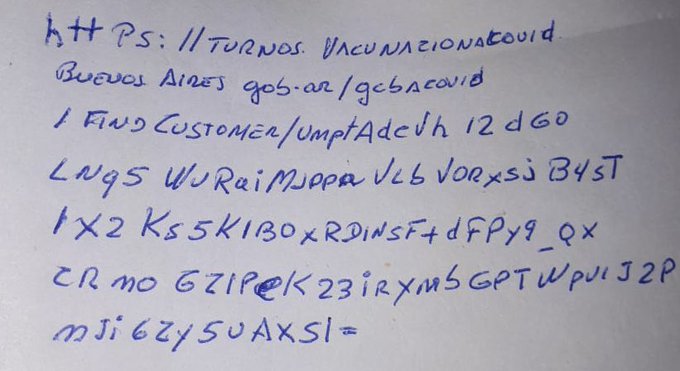 httPS: // TURNOS. VACUNACIONACOVID
BUENOS AIRES gob.ar/gcbacovid
/ FIND CUSTOMER/UmptAdeVh 12 dGO
LNq5 WURaiMJPPA VLb VORxSj B4sT
1X2 Ks5K1BOxRDiNSFtdFPy9_QX
ZR no GZ1PeK23iRXMbGPTWPVIJ2P
nJi6Zy5UAXSI=